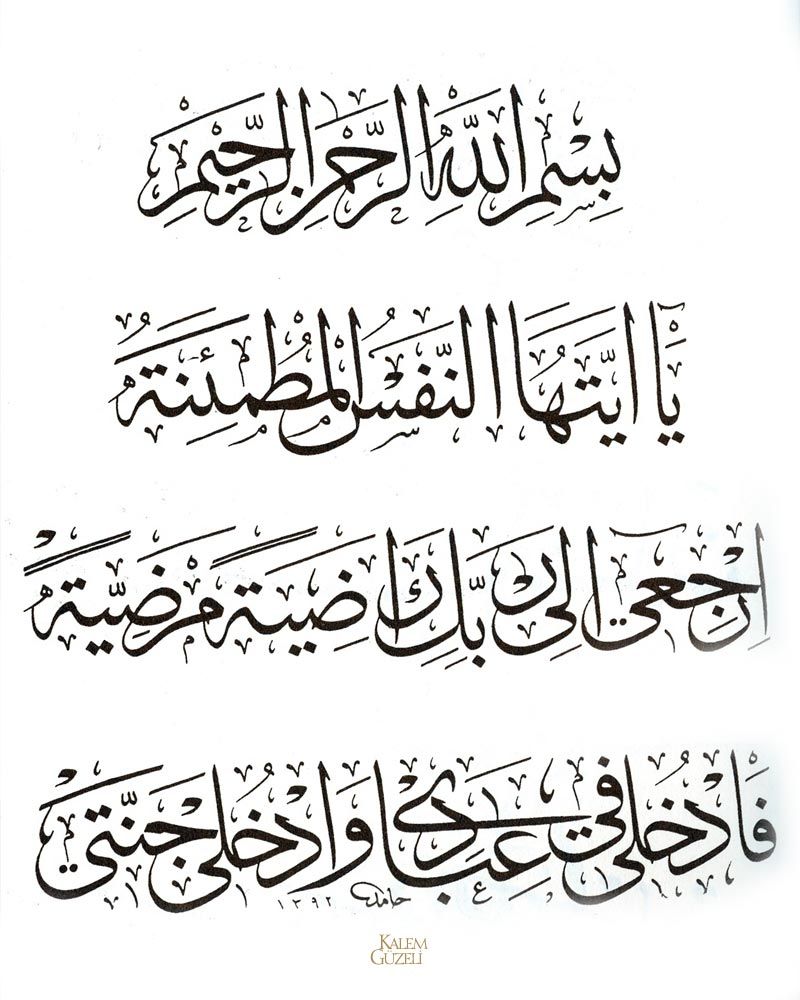 بِسْمِ اللّٰهِ الرَّحْمٰنِ الرَّحِيْمِ
يَٓا اَيَّتُهَا النَّفْسُ الْمُطْمَئِنَّةُ
اِرْجِعٓي اِلٰى رَبِّكِ رَاضِيَةً مَرْضِيَّةً
فَادْخُلي في عِبَادي وَادْخُلي جَنَّتي
حامد ١٣٩٢
KALEM
GÜZELİ